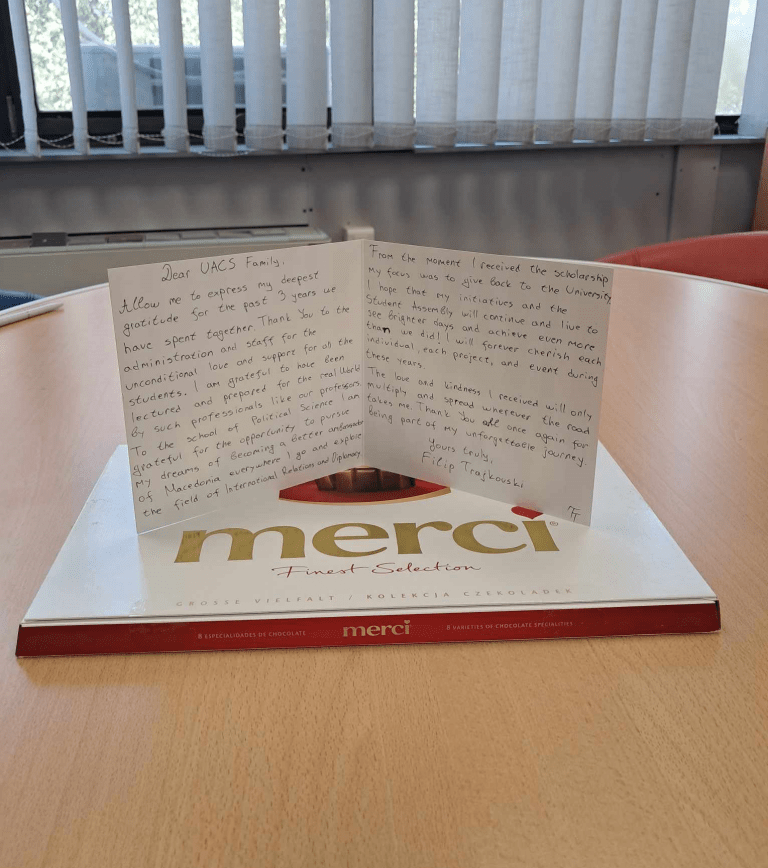 Dear UACS Family,
Allow me to express my deepest
gratitude for the past 3 years we
have spent together. Thank You to the
administration and staff for the
unconditional love and support for all the
students. I am grateful to have been
lectured and prepared for the real world
by such professionals like our professors.
To the school of Political Science I am
grateful for the opportunity to pursue
my dreams of becoming a better ambassador
of Macedonia everywhere I go and explore
the field of International Relations and Diplomacy.
From the moment I received the scholarship
my focus was to give back to the University.
I hope that my initiatives and the
Student Assembly will continue and live to
see brighter days and achieve even more
than we did! I will forever cherish each
individual, each project, and event during
these years.
The love and kindness I received will only
multiply and spread wherever the road
takes me. Thank You all once again for
being part of my unforgettable journey.
Yours truly,
Filip Trajkovski
FT
merci®
Finest Selection
GROSSE VIELFALT / KOLEKCJA CZEKOLADEK
8 ESPECIALIDADES DE CHOCOLATE merci 8 VARIETIES OF CHOCOLATE SPECIALITIES